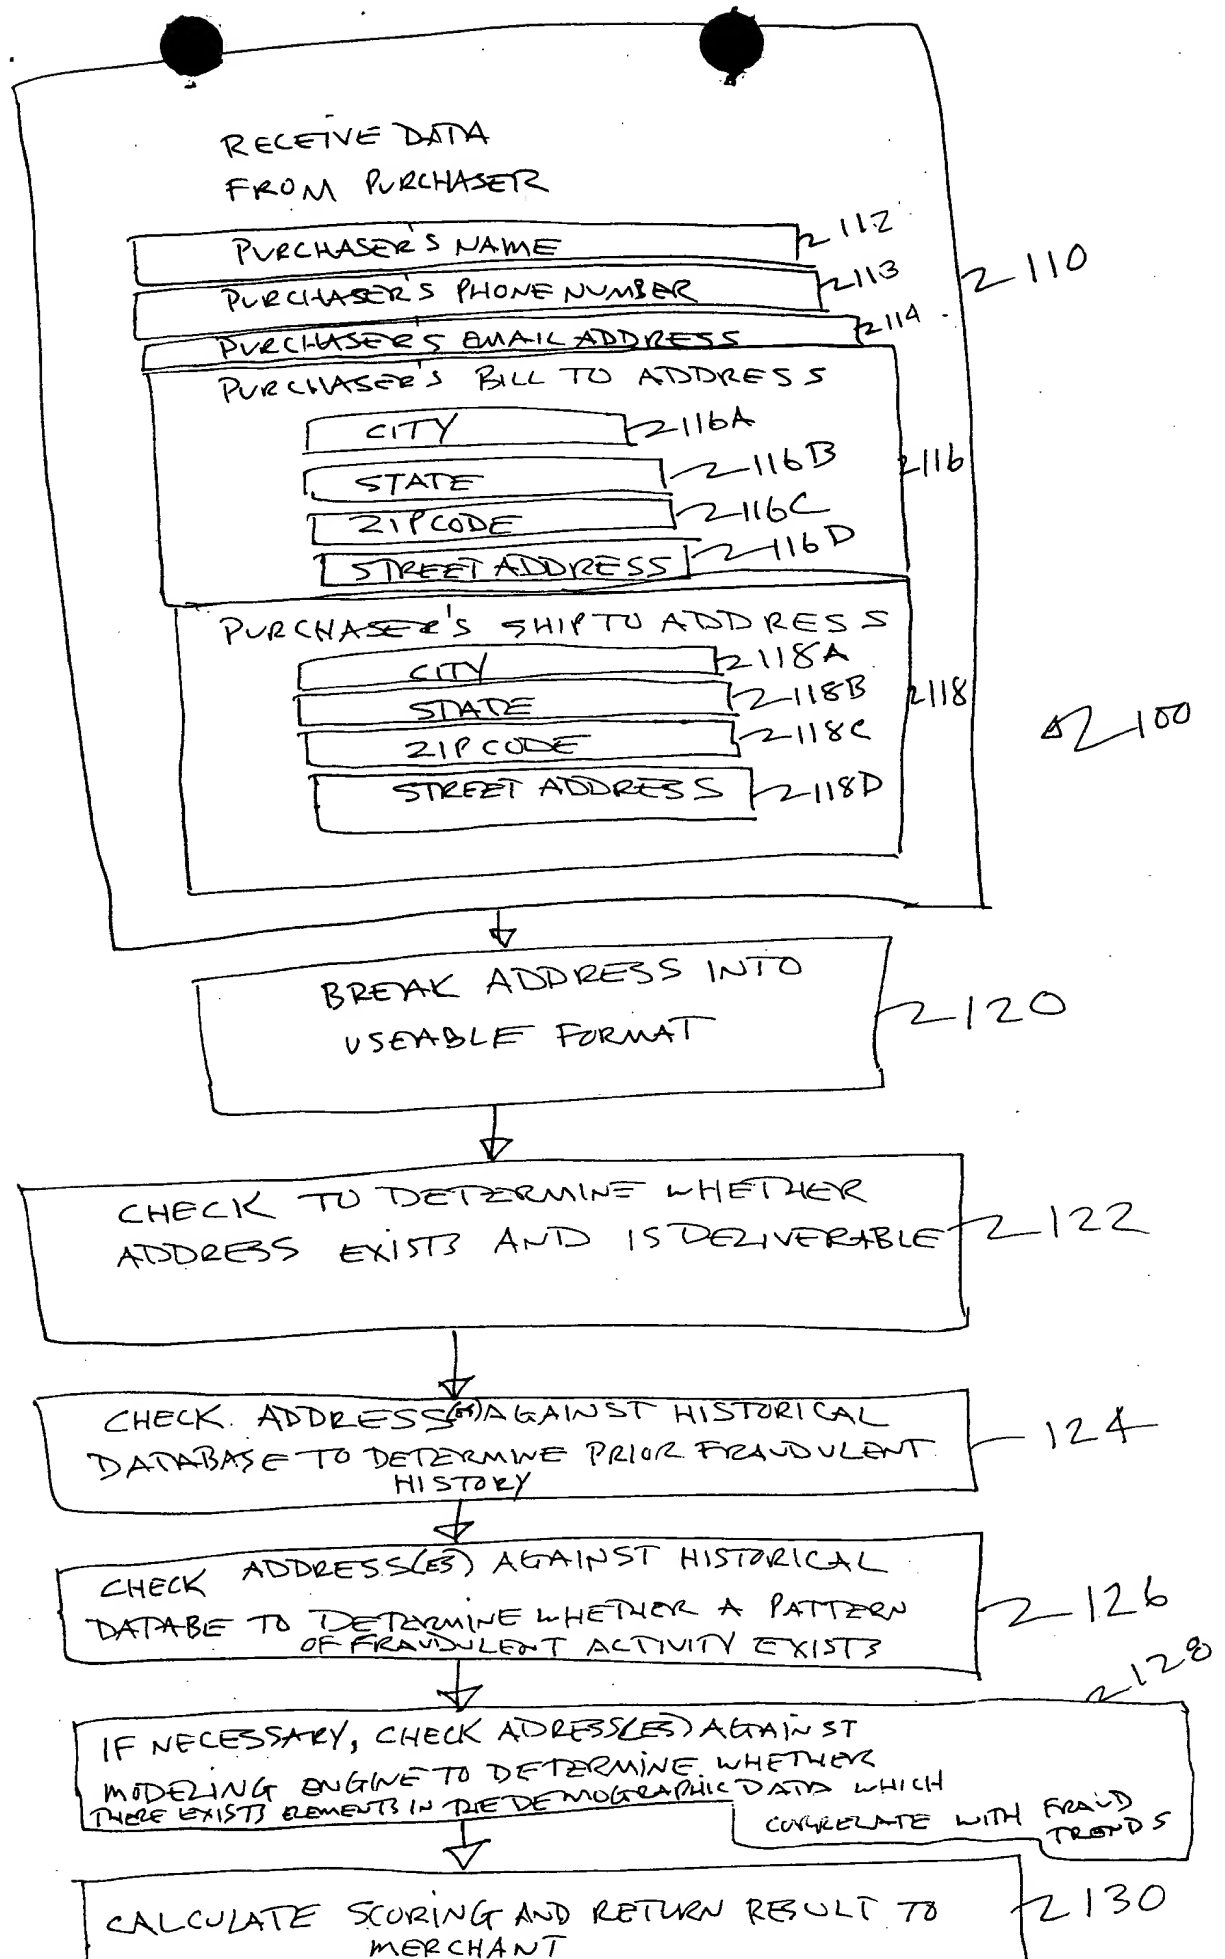 RECEIVE DATA
FROM PURCHASER
PURCHASER'S NAME 112
PURCHASER'S PHONE NUMBER 113
110
PURCHASER'S EMAIL ADDRESS 114
PURCHASER'S BILL TO ADDRESS
CITY 116A
STATE 116B
116
ZIPCODE 116C
STREET ADDRESS 116D
PURCHASER'S SHIP TO ADDRESS
CITY 118A
STATE 118B
118
ZIP CODE 118C
100
STREET ADDRESS 118D
BREAK ADDRESS INTO
USEABLE FORMAT
120
CHECK TO DETERMINE WHETHER
ADDRESS EXISTS AND IS DELIVERABLE
122
CHECK ADDRESS(ES) AGAINST HISTORICAL
DATABASE TO DETERMINE PRIOR FRAUDULENT
HISTORY
124
CHECK ADDRESS(ES) AGAINST HISTORICAL
DATABE TO DETERMINE WHETHER A PATTERN
OF FRAUDULENT ACTIVITY EXISTS
126
128
IF NECESSARY, CHECK ADRESS(ES) AGAINST
MODELING ENGINE TO DETERMINE WHETHER
THERE EXISTS ELEMENTS IN THE DEMOGRAPHIC DATA WHICH
CORRELATE WITH FRAUD
TRENDS
CALCULATE SCORING AND RETURN RESULT TO
MERCHANT
130